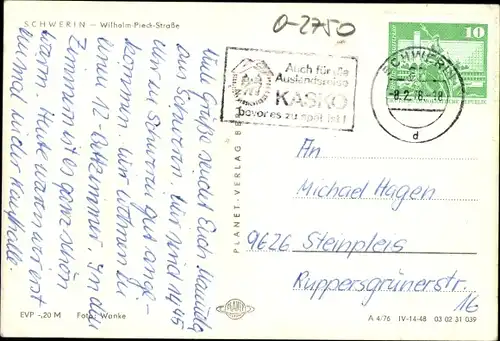 SCHWERIN — Wilhelm-Pieck-Straße
O-2750
Auch für die
Auslandsreise
KASKO
bevor es zu spät ist!
SCHWERIN
-8.2.78-18
d
10
Viele Grüße sendet Euch
aus Schwerin. Wir sind 19,45
Uhr in Schwerin gut ange-
kommen. Wir wohnen in
einem 12-Bettzimmer. In den
Zimmern ist es ganz schön
warm. Heute waren wir erst
einmal in der Kaufhalle.
PLANET-VERLAG BERLIN
PLANET
An
Michael Hagen
9626 Steinpleis
Ruppersgrünerstr.
16
EVP -,20 M Foto: Wanke
A 4/76 IV-14-48 03 02 31 039